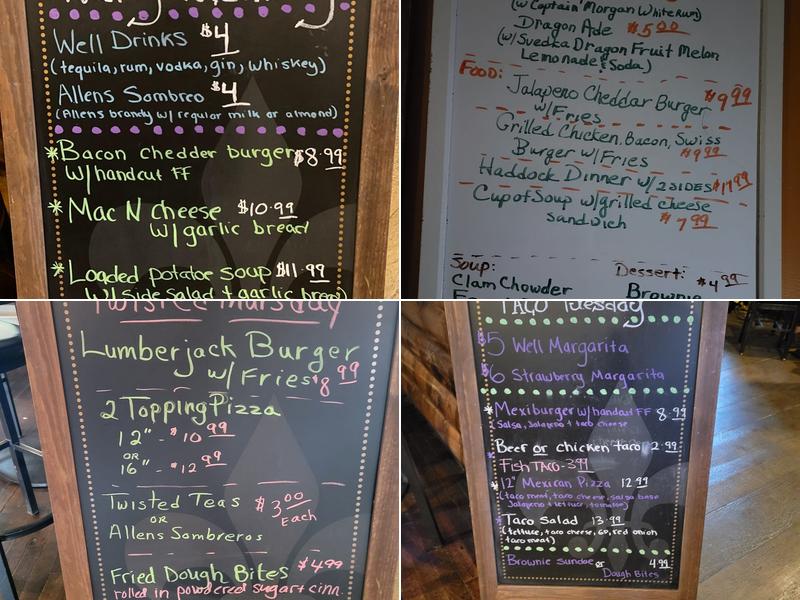 Well Drinks $4
(tequila, rum, vodka, gin, whiskey)
Allens Sombreo $4
(Allens brandy w/ regular milk or almond)
*Bacon chedder burger $8.99
w/handcut FF
*Mac N cheese $10.99
w/ garlic bread
*Loaded potatoe soup $11.99
w/ side salad + garlic bread)
(w/ Captain Morgan White Rum)
Dragon Ade $5.00
(w/ Svedka Dragon Fruit Melon
Lemonade & Soda)
Food:
Jalapeno Cheddar Burger $9.99
w/Fries
Grilled Chicken, Bacon, Swiss
Burger w/Fries $9.99
Haddock Dinner w/ 2 SIDES
Cup of Soup w/grilled cheese
sandwich $7.99
Soup:
Clam Chowder
Dessert: $4.99
Brownie
Twisted Thursday
Lumberjack Burger
w/ Fries $8.99
2 Topping Pizza
12" - $10.99
OR
16" - $12.99
Twisted Teas $3.00
OR Each
Allens Sombreros
Fried Dough Bites $4.99
rolled in powdered sugar + cinn.
TACO Tuesday
$5 Well Margarita
$6 Strawberry Margarita
*Mexiburger w/handcut FF 8.99
(Salsa, Jalapeno + taco cheese
Beef or chicken taco 2.99
Fish TACO - 3.99
*12" Mexican Pizza 12.99
(taco meat, taco cheese, salsa base
Jalapeno + lettuce, tomatoe)
*Taco Salad 13.99
(lettuce, taco cheese, GP, red onion
taco meat)
Brownie Sundae or 4.99
Dough Bites